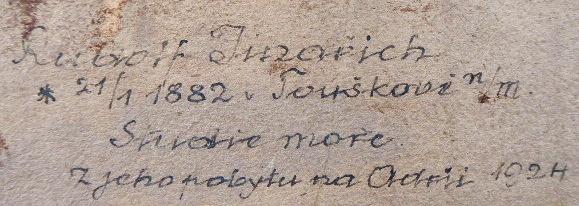 Rudolf Jinařich
* 21/1 1882 v Touškově n/M.
Studie moře.
Z jeho pobytu na Adrii 1924